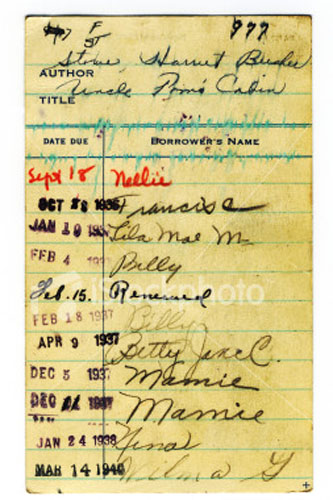 F
ST
977
Stowe, Harriet Beecher
AUTHOR
Uncle Tom's Cabin
TITLE
DATE DUE BORROWER'S NAME
Sept 18 Nellie
OCT 28 1936 Francis C
JAN 19 1937 Lila Mae M
FEB 4 1937 Billy
iStockphoto
Feb. 15. Renewed
FEB 18 1937 Billy
APR 9 1937 Betty Jane C.
DEC 3 1937 Mamie
DEC 1937 Mamie
JAN 24 1938 Nina
MAR 14 1940 Wilma G